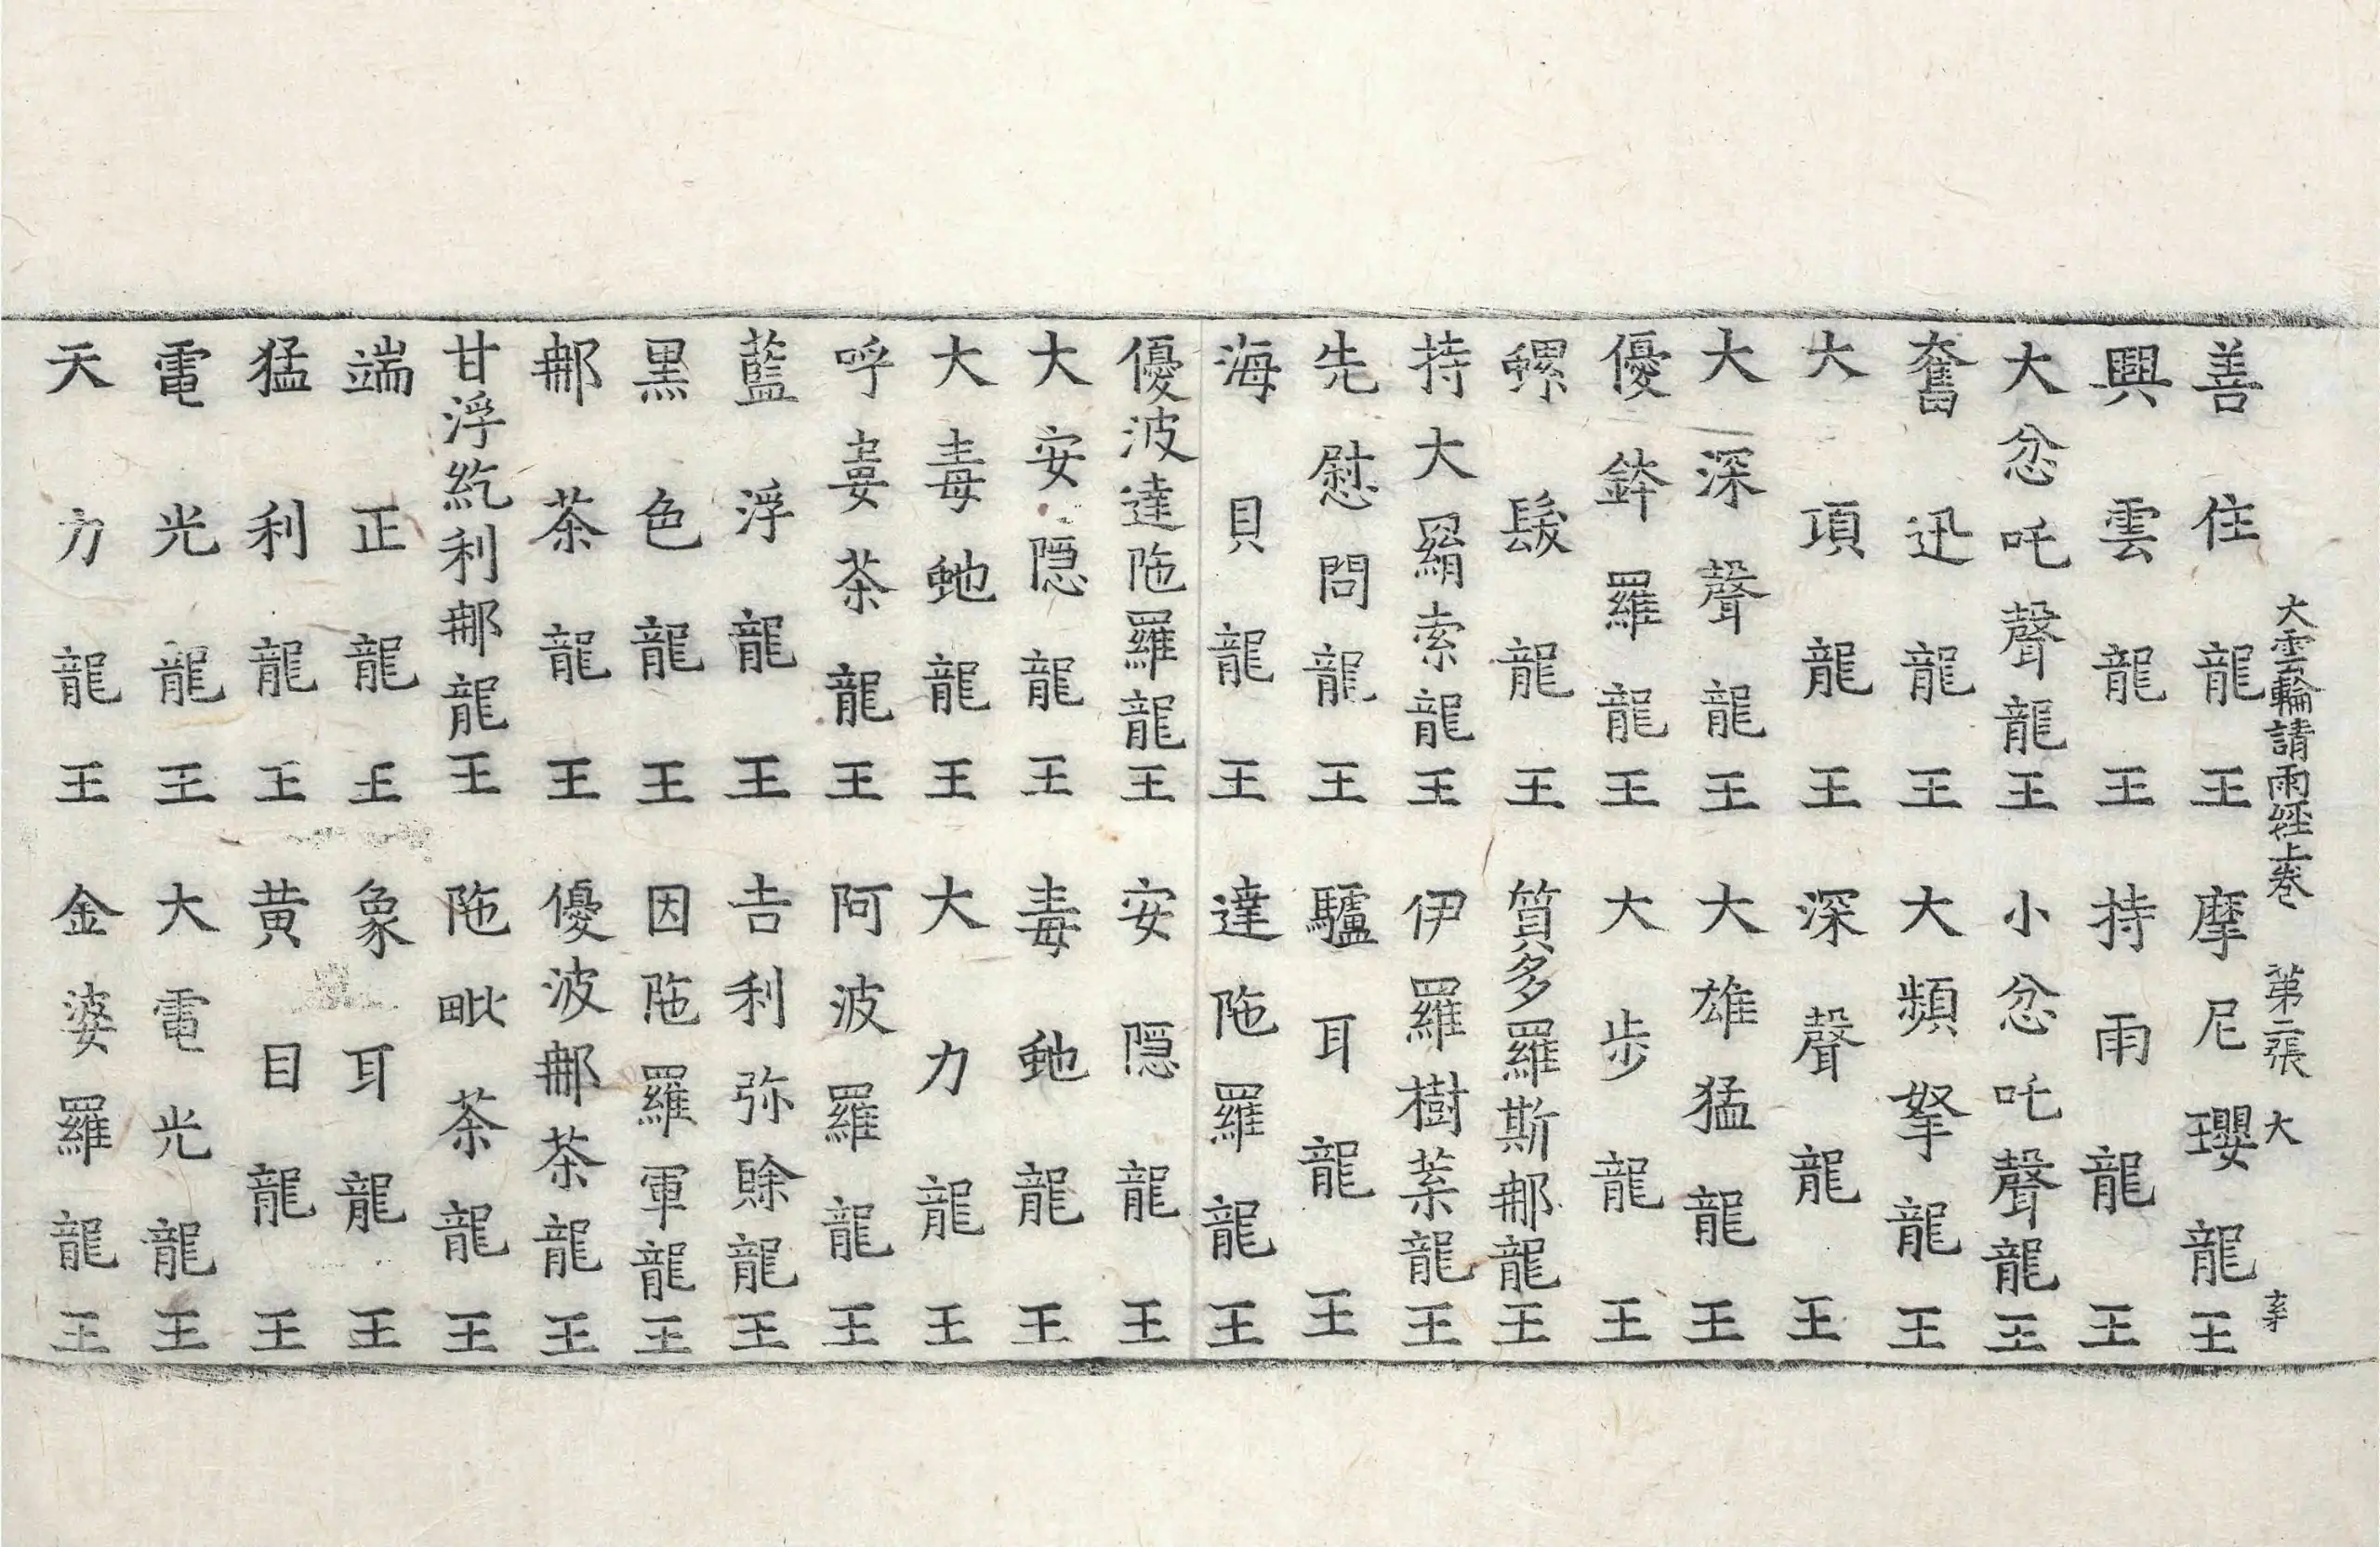 大雲輪請雨經上卷 第二張 大
善住龍王 摩尼瓔龍王
興雲龍王 持雨龍王
大忿吒聲龍王 小忿吒聲龍王
奮迅龍王 大頻拏龍王
大項龍王 深聲龍王
大深聲龍王 大雄猛龍王
優鉢羅龍王 大步龍王
螺髮龍王 質多羅斯那龍王
持大羂索龍王 伊羅樹葉龍王
先慰問龍王 驢耳龍王
海貝龍王 達陁羅龍王
優波達陁羅龍王 安隠龍王
大安隠龍王 毒虵龍王
大毒虵龍王 大力龍王
呼婁茶龍王 阿波羅龍王
藍浮龍王 吉利弥賖龍王
黑色龍王 因陁羅軍龍王
那茶龍王 優波那茶龍王
甘浮紇利那龍王 陁毗茶龍王
端正龍王 象耳龍王
猛利龍王 黄目龍王
電光龍王 大電光龍王
天力龍王 金婆羅龍王